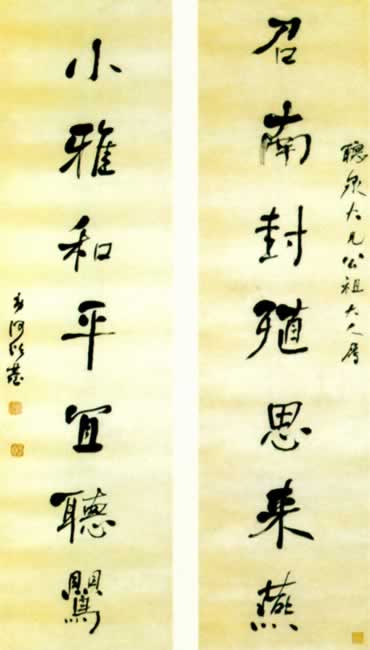 聽泉大兄公祖大人属
召南封殖思來燕
小雅和平宜聽鸎
何紹基